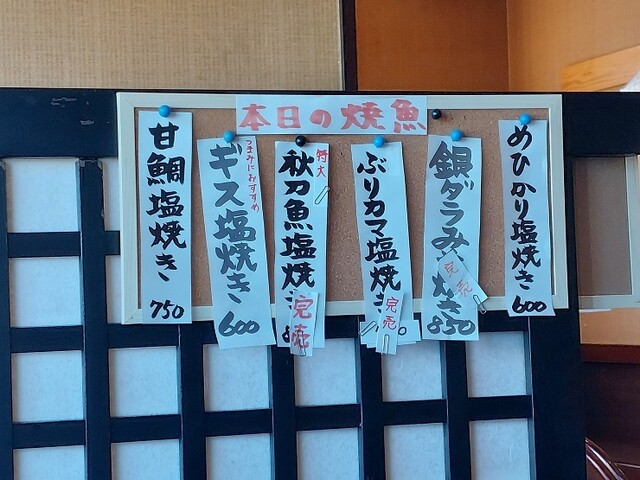 本日の焼魚
甘鯛塩焼き
750
ギス塩焼き
つまみにおすすめ
600
秋刀魚塩焼
特大
完売
8
ぶりカマ塩焼き
完売
0
銀ダラみ
焼き
完売
850
めひかり塩焼き
600